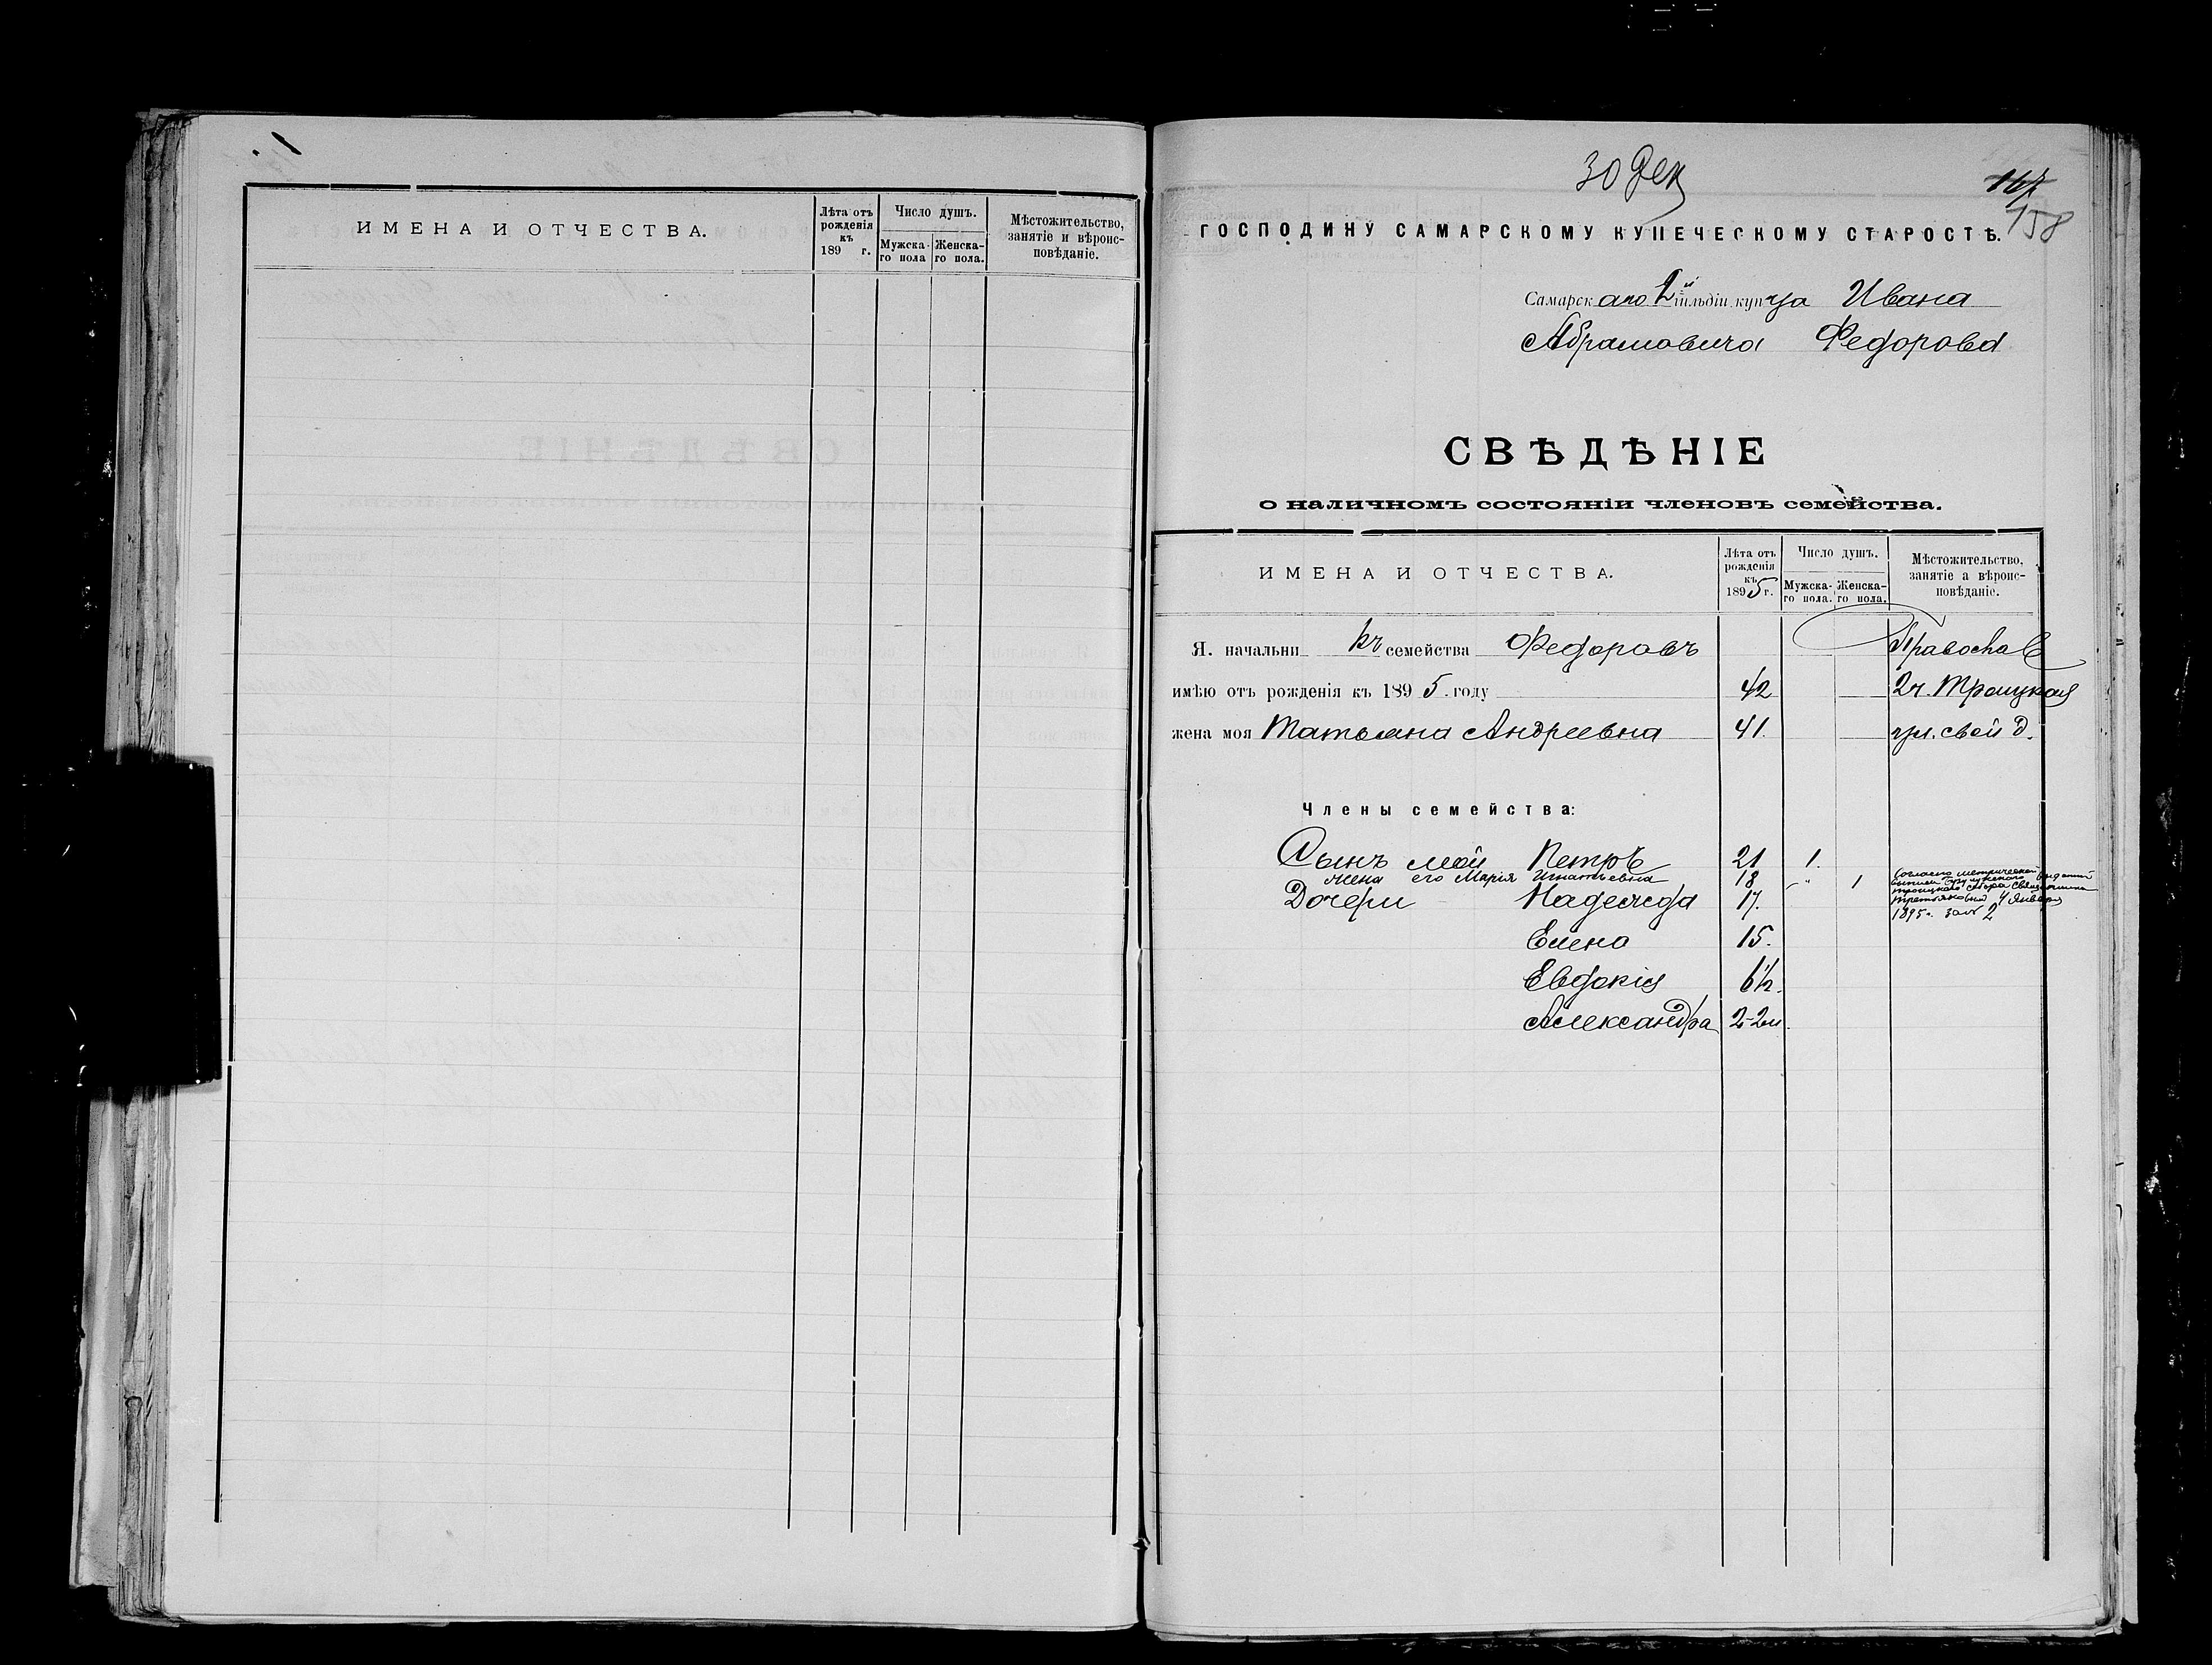 ИМЕНА И ОТЧЕСТВА.
Лѣта отъ рожденія къ 189 г.
Число душъ.
Мужска-го пола
Женска-го пола.
Мѣстожительство, занятіе и вѣроис-повѣданіе.
30 Дек
158
ГОСПОДИНУ САМАРСКОМУ КУПЕЧЕСКОМУ СТАРОСТѢ.
Самарскаго 2й гильдіи купца Ивана
Абрамовича Федорова
СВѢДѢНІЕ
о наличномъ состояніи членовъ семейства.
ИМЕНА И ОТЧЕСТВА.
Лѣта отъ рожденія къ 1895 г.
Число душъ.
Мужска-го пола.
Женска-го пола.
Мѣстожительство, занятіе а вѣроис-повѣданіе.
Я. начальникъ семейства Федоровъ Православ
имѣю отъ рожденія къ 1895. году 42 2 ч. Троицкая
жена моя Татьяна Андреевна 41. ул. свой д.
Члены семейства:
Сынъ мой Петръ 21 1.
жена его Марія Игнатьевна 18 " 1
Дочери Надежда 17.
Елена 15.
Евдокія 6½.
Александра 2-2м.
Согласно метрической
выписи выданной
Троицкаго собора
4 Января
1895 г. за № 2